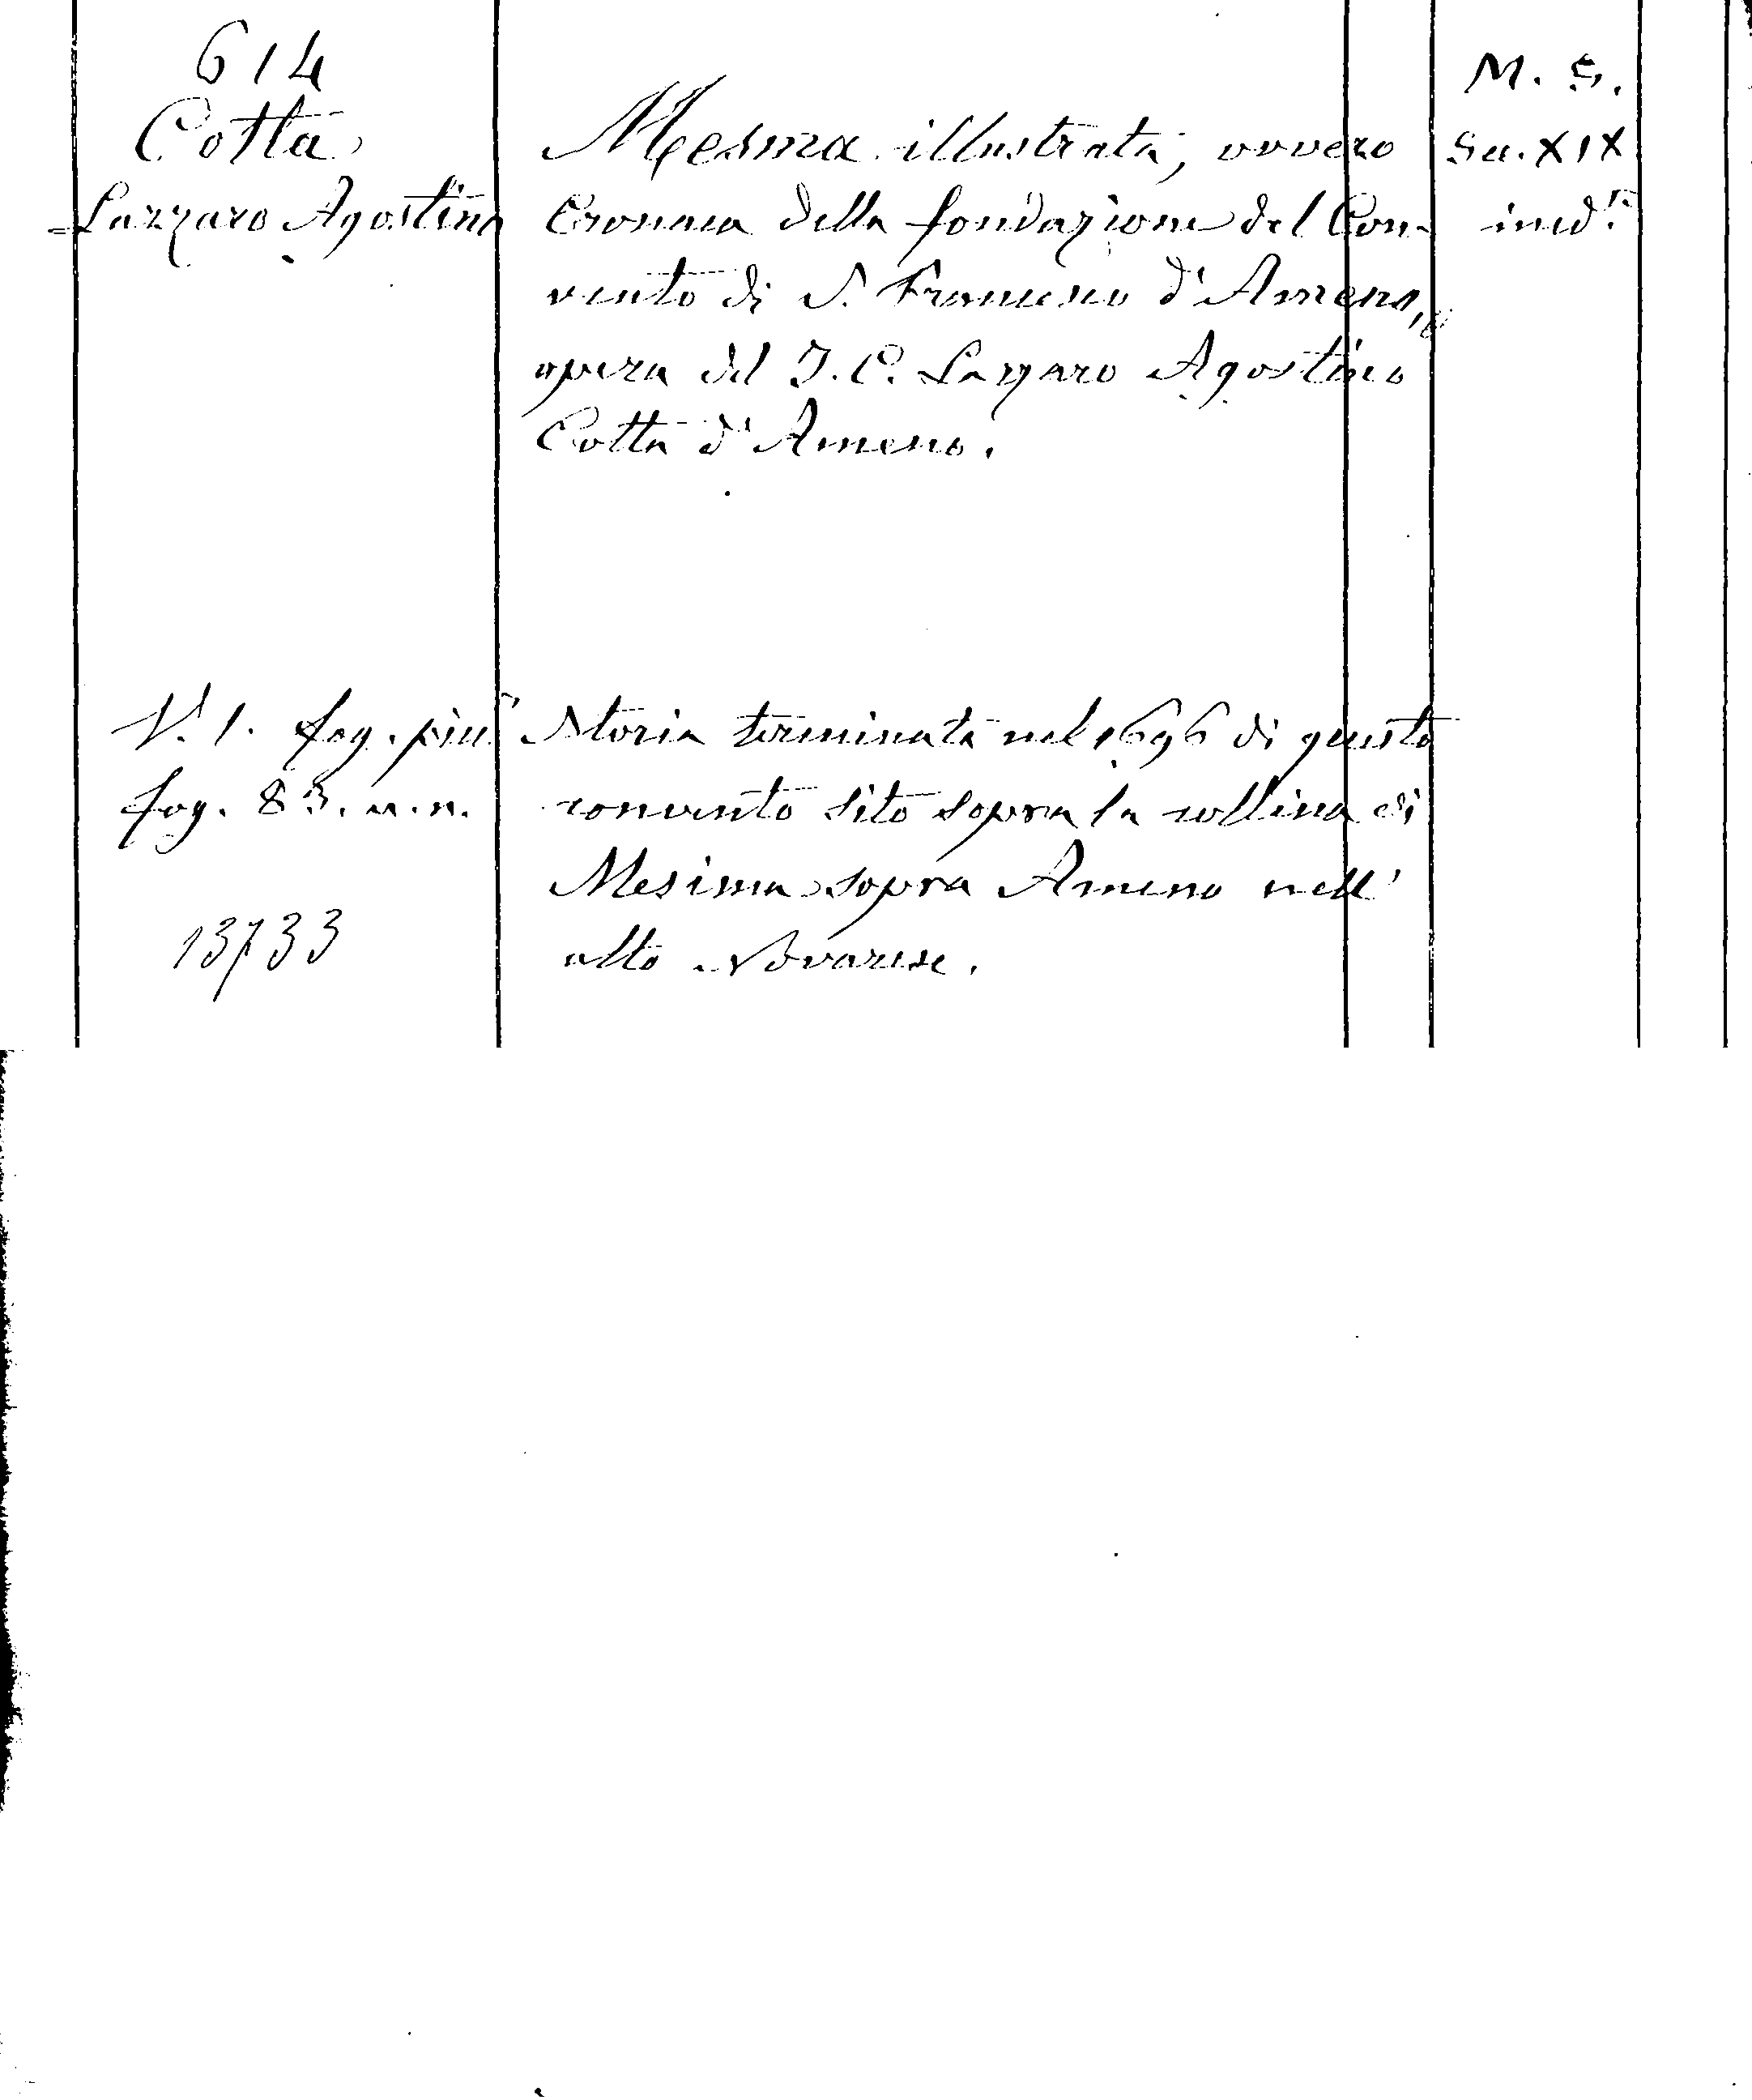 614
Cotta
Lazzaro Agostino
Mesma illustrata, ovvero
Cronaca della fondazione del Con-
vento di S. Francesco d'Ameno,
opera del J. C. Lazzaro Agostino
Cotta d'Ameno.
M. S.
Sec. XIX
ined.º
V. 1. fog. piu
fog. 83. n. n.
13733
Storia terminata nel 1696 di questo
convento sito sopra la collina di
Mesima sopra Ameno nell'
alto Novarese.